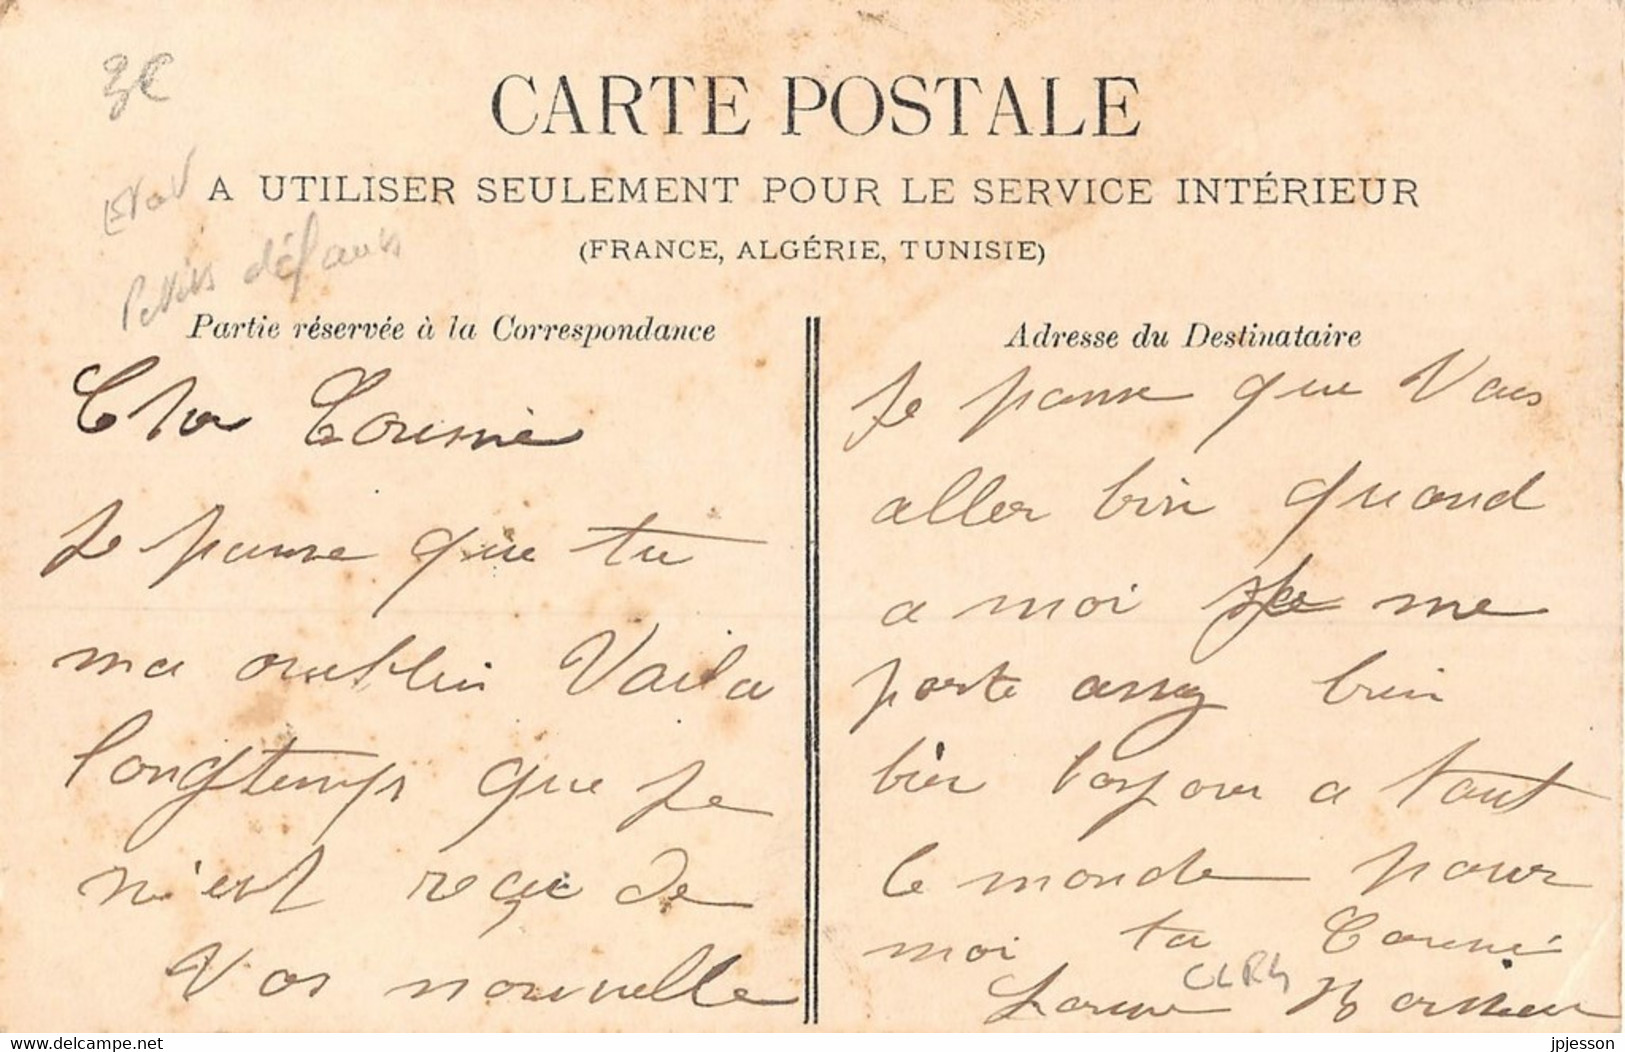 3€
CARTE POSTALE
A UTILISER SEULEMENT POUR LE SERVICE INTÉRIEUR
(FRANCE, ALGÉRIE, TUNISIE)
Petits défauts
Partie réservée à la Correspondance
Cher Cousine
Je panse que tu
ma oublin Vaila
longtemps que je
n'est reçu de
Vos nouvelle
Adresse du Destinataire
Je panse que Vous
aller bin quand
a moi je me
porte assez bien
bien bonjour a tout
le monde pour
moi ta Cousine
CLRH
Delcampe.net
jpjesson